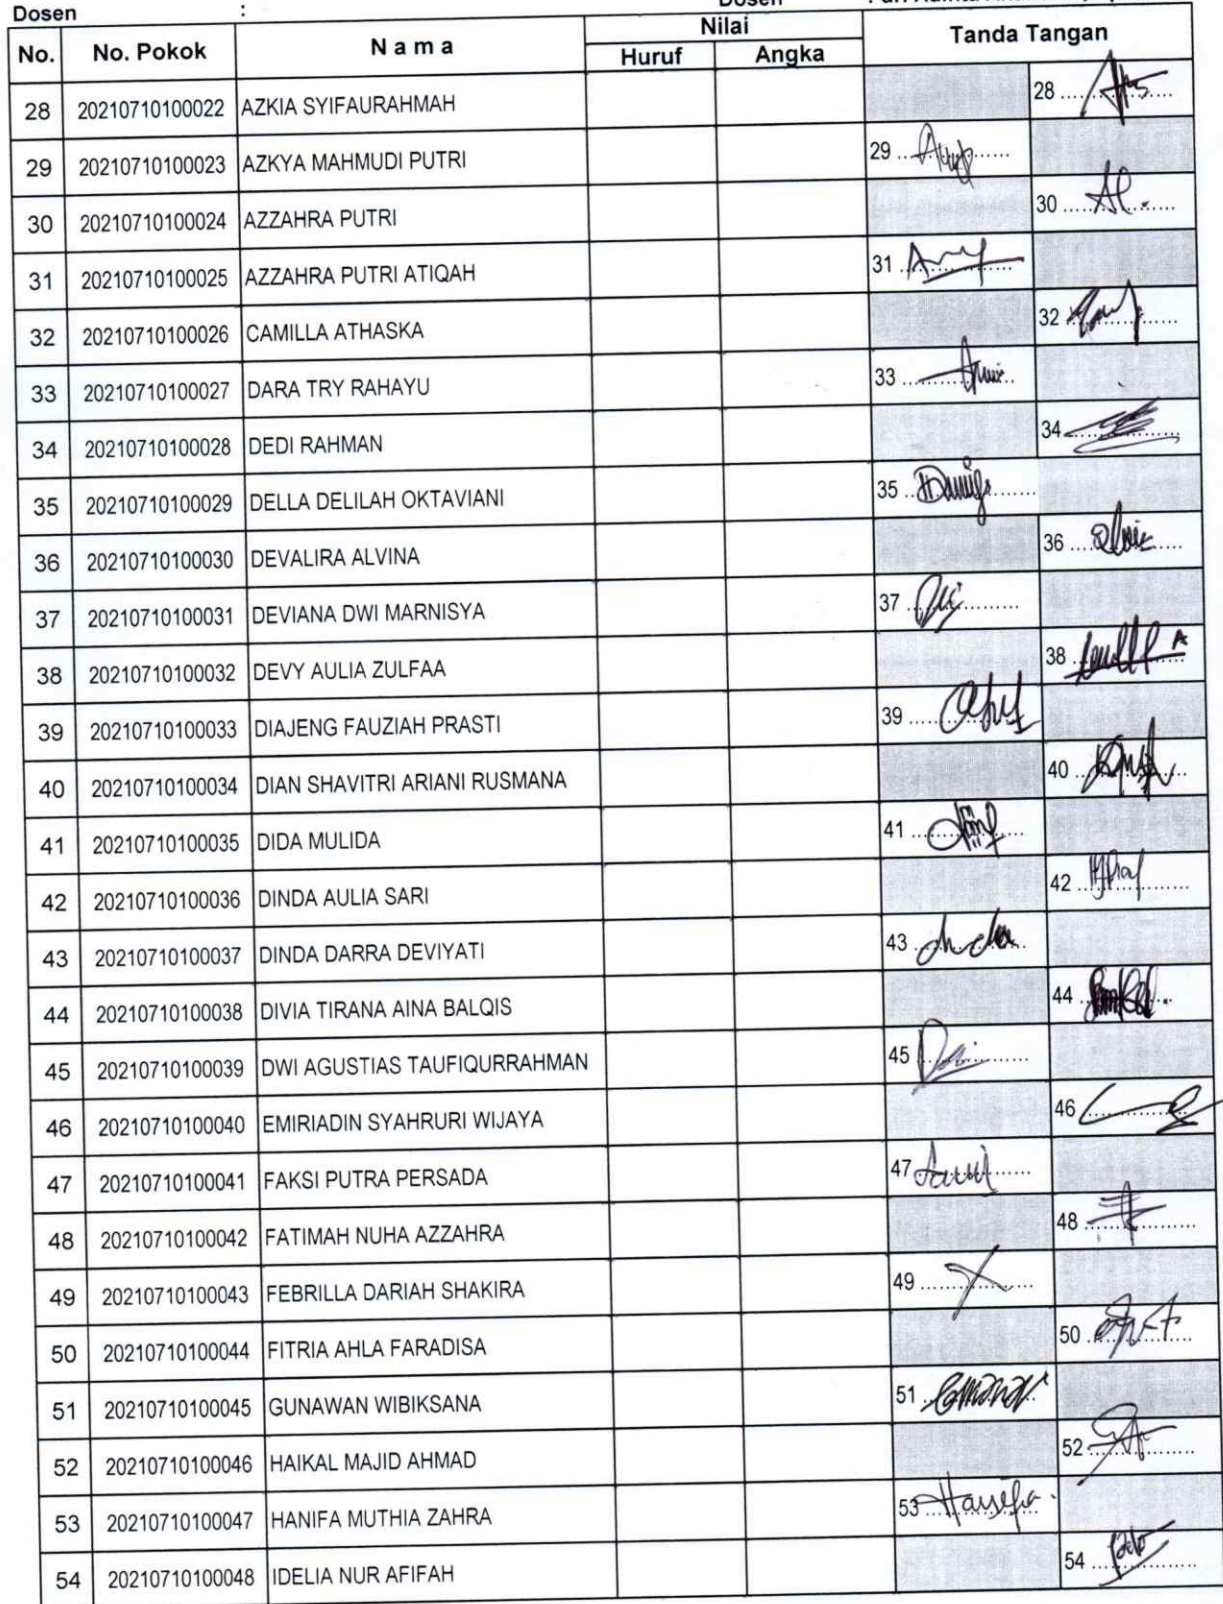 Dosen :
Dosen : dr.
No. No. Pokok N a m a Nilai Tanda Tangan
Huruf Angka
28 20210710100022 AZKIA SYIFAURAHMAH 28
29 20210710100023 AZKYA MAHMUDI PUTRI 29
30 20210710100024 AZZAHRA PUTRI 30
31 20210710100025 AZZAHRA PUTRI ATIQAH 31
32 20210710100026 CAMILLA ATHASKA 32
33 20210710100027 DARA TRY RAHAYU 33
34 20210710100028 DEDI RAHMAN 34
35 20210710100029 DELLA DELILAH OKTAVIANI 35
36 20210710100030 DEVALIRA ALVINA 36
37 20210710100031 DEVIANA DWI MARNISYA 37
38 20210710100032 DEVY AULIA ZULFAA 38
39 20210710100033 DIAJENG FAUZIAH PRASTI 39
40 20210710100034 DIAN SHAVITRI ARIANI RUSMANA 40
41 20210710100035 DIDA MULIDA 41
42 20210710100036 DINDA AULIA SARI 42
43 20210710100037 DINDA DARRA DEVIYATI 43
44 20210710100038 DIVIA TIRANA AINA BALQIS 44
45 20210710100039 DWI AGUSTIAS TAUFIQURRAHMAN 45
46 20210710100040 EMIRIADIN SYAHRURI WIJAYA 46
47 20210710100041 FAKSI PUTRA PERSADA 47
48 20210710100042 FATIMAH NUHA AZZAHRA 48
49 20210710100043 FEBRILLA DARIAH SHAKIRA 49
50 20210710100044 FITRIA AHLA FARADISA 50
51 20210710100045 GUNAWAN WIBIKSANA 51
52 20210710100046 HAIKAL MAJID AHMAD 52
53 20210710100047 HANIFA MUTHIA ZAHRA 53
54 20210710100048 IDELIA NUR AFIFAH 54